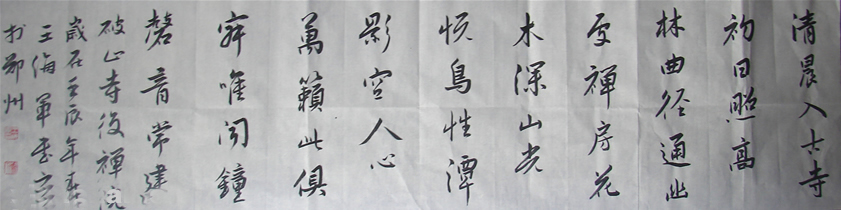 清晨入古寺
初日照高
林曲径通幽
处禪房花
木深山光
悦鳥性潭
影空人心
萬籟此俱
寂唯闻鐘
磬音常建
破山寺後禪院
歲在壬辰年春
王海軍書
於郑州